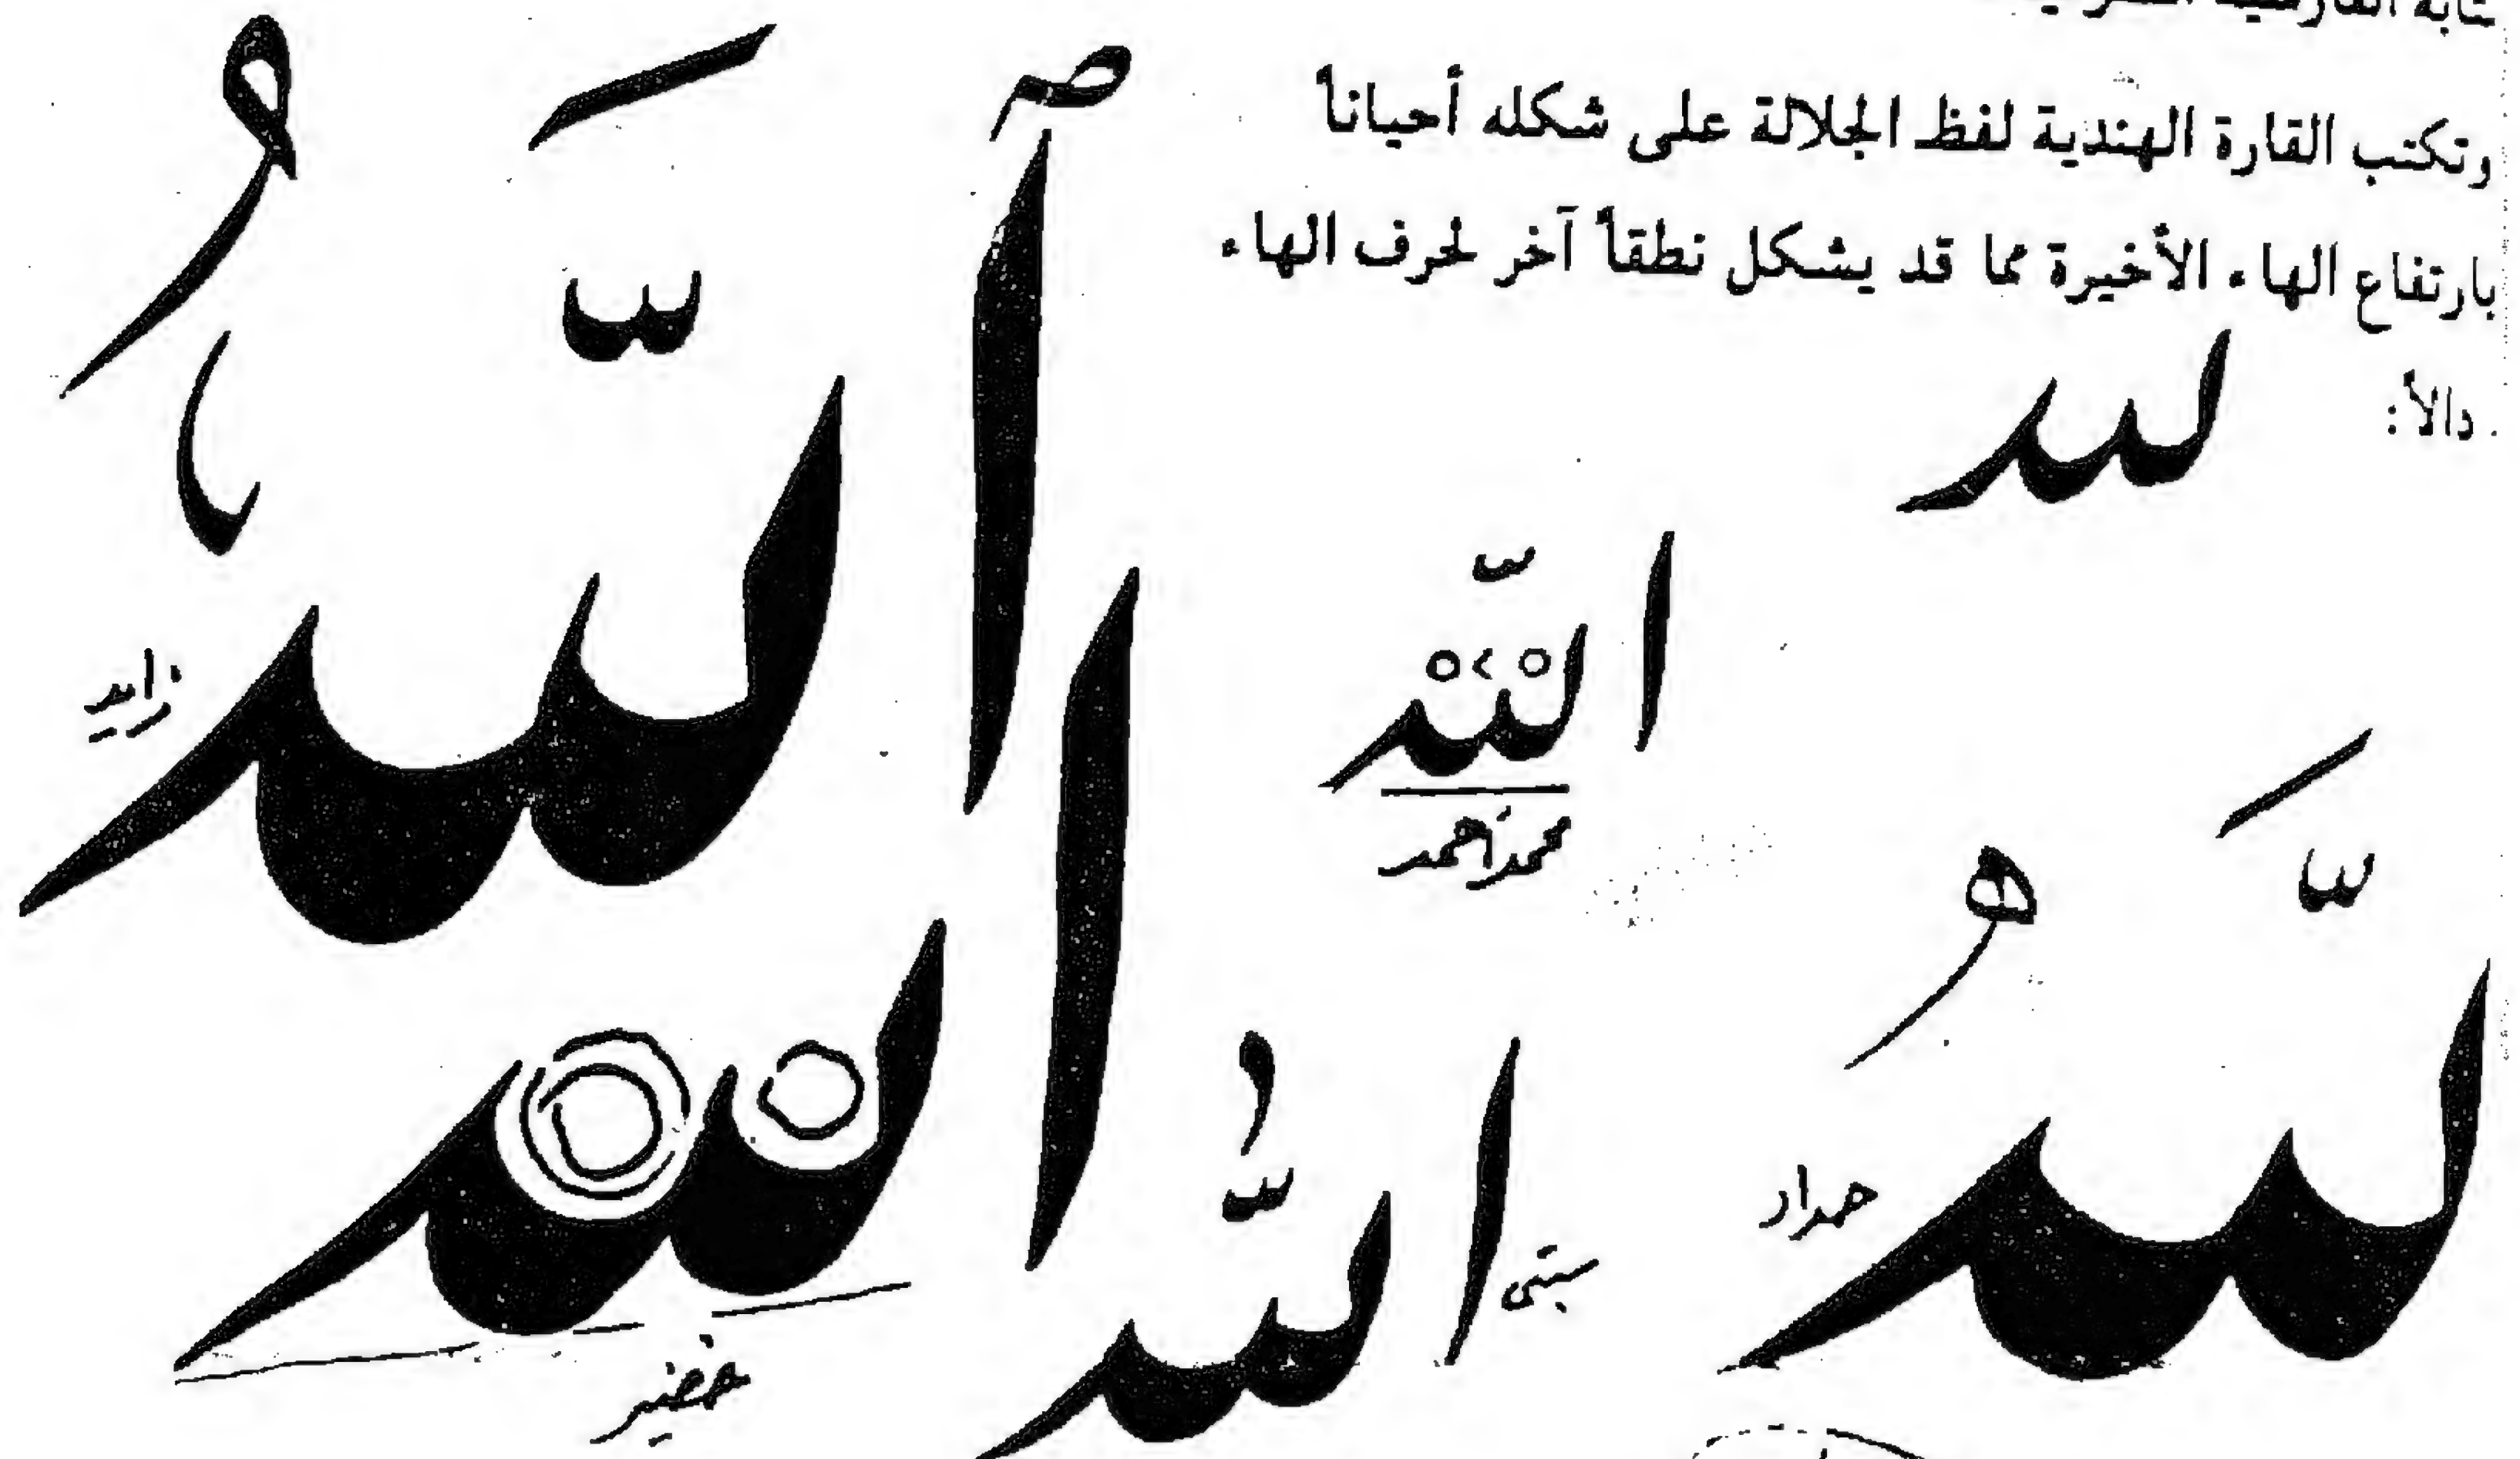 وتكتب القارة الهندية لفظ الجلالة على شكله أحياناً
بارتفاع الهاء الأخيرة مما قد يشكل نطقاً آخر لحرف الهاء
دالاً:
لله
ٱللَّهُ
الله
محمد أحمد
زايد
للَّه
حداد
الله
خضير
اللّٰه